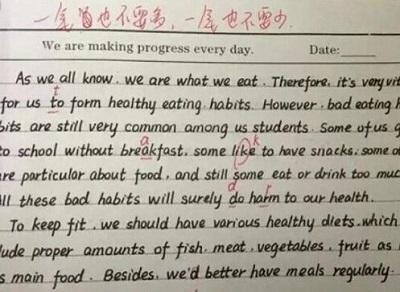 一笔也不要多,一笔也不要少.
We are making progress every day. Date:
As we all know, we are what we eat. Therefore, it's very vit
t
for us to form healthy eating habits. However, bad eating h
bits are still very common among us students. Some of us g
k
to school without breakfast, some like to have snacks, some o
a
re particular about food, and still some eat or drink too muc
d r
ll these bad habits will surely do harm to our health.
To keep fit, we should have various healthy diets, which
lude proper amounts of fish, meat, vegetables, fruit as
s main food. Besides, we'd better have meals regularly.